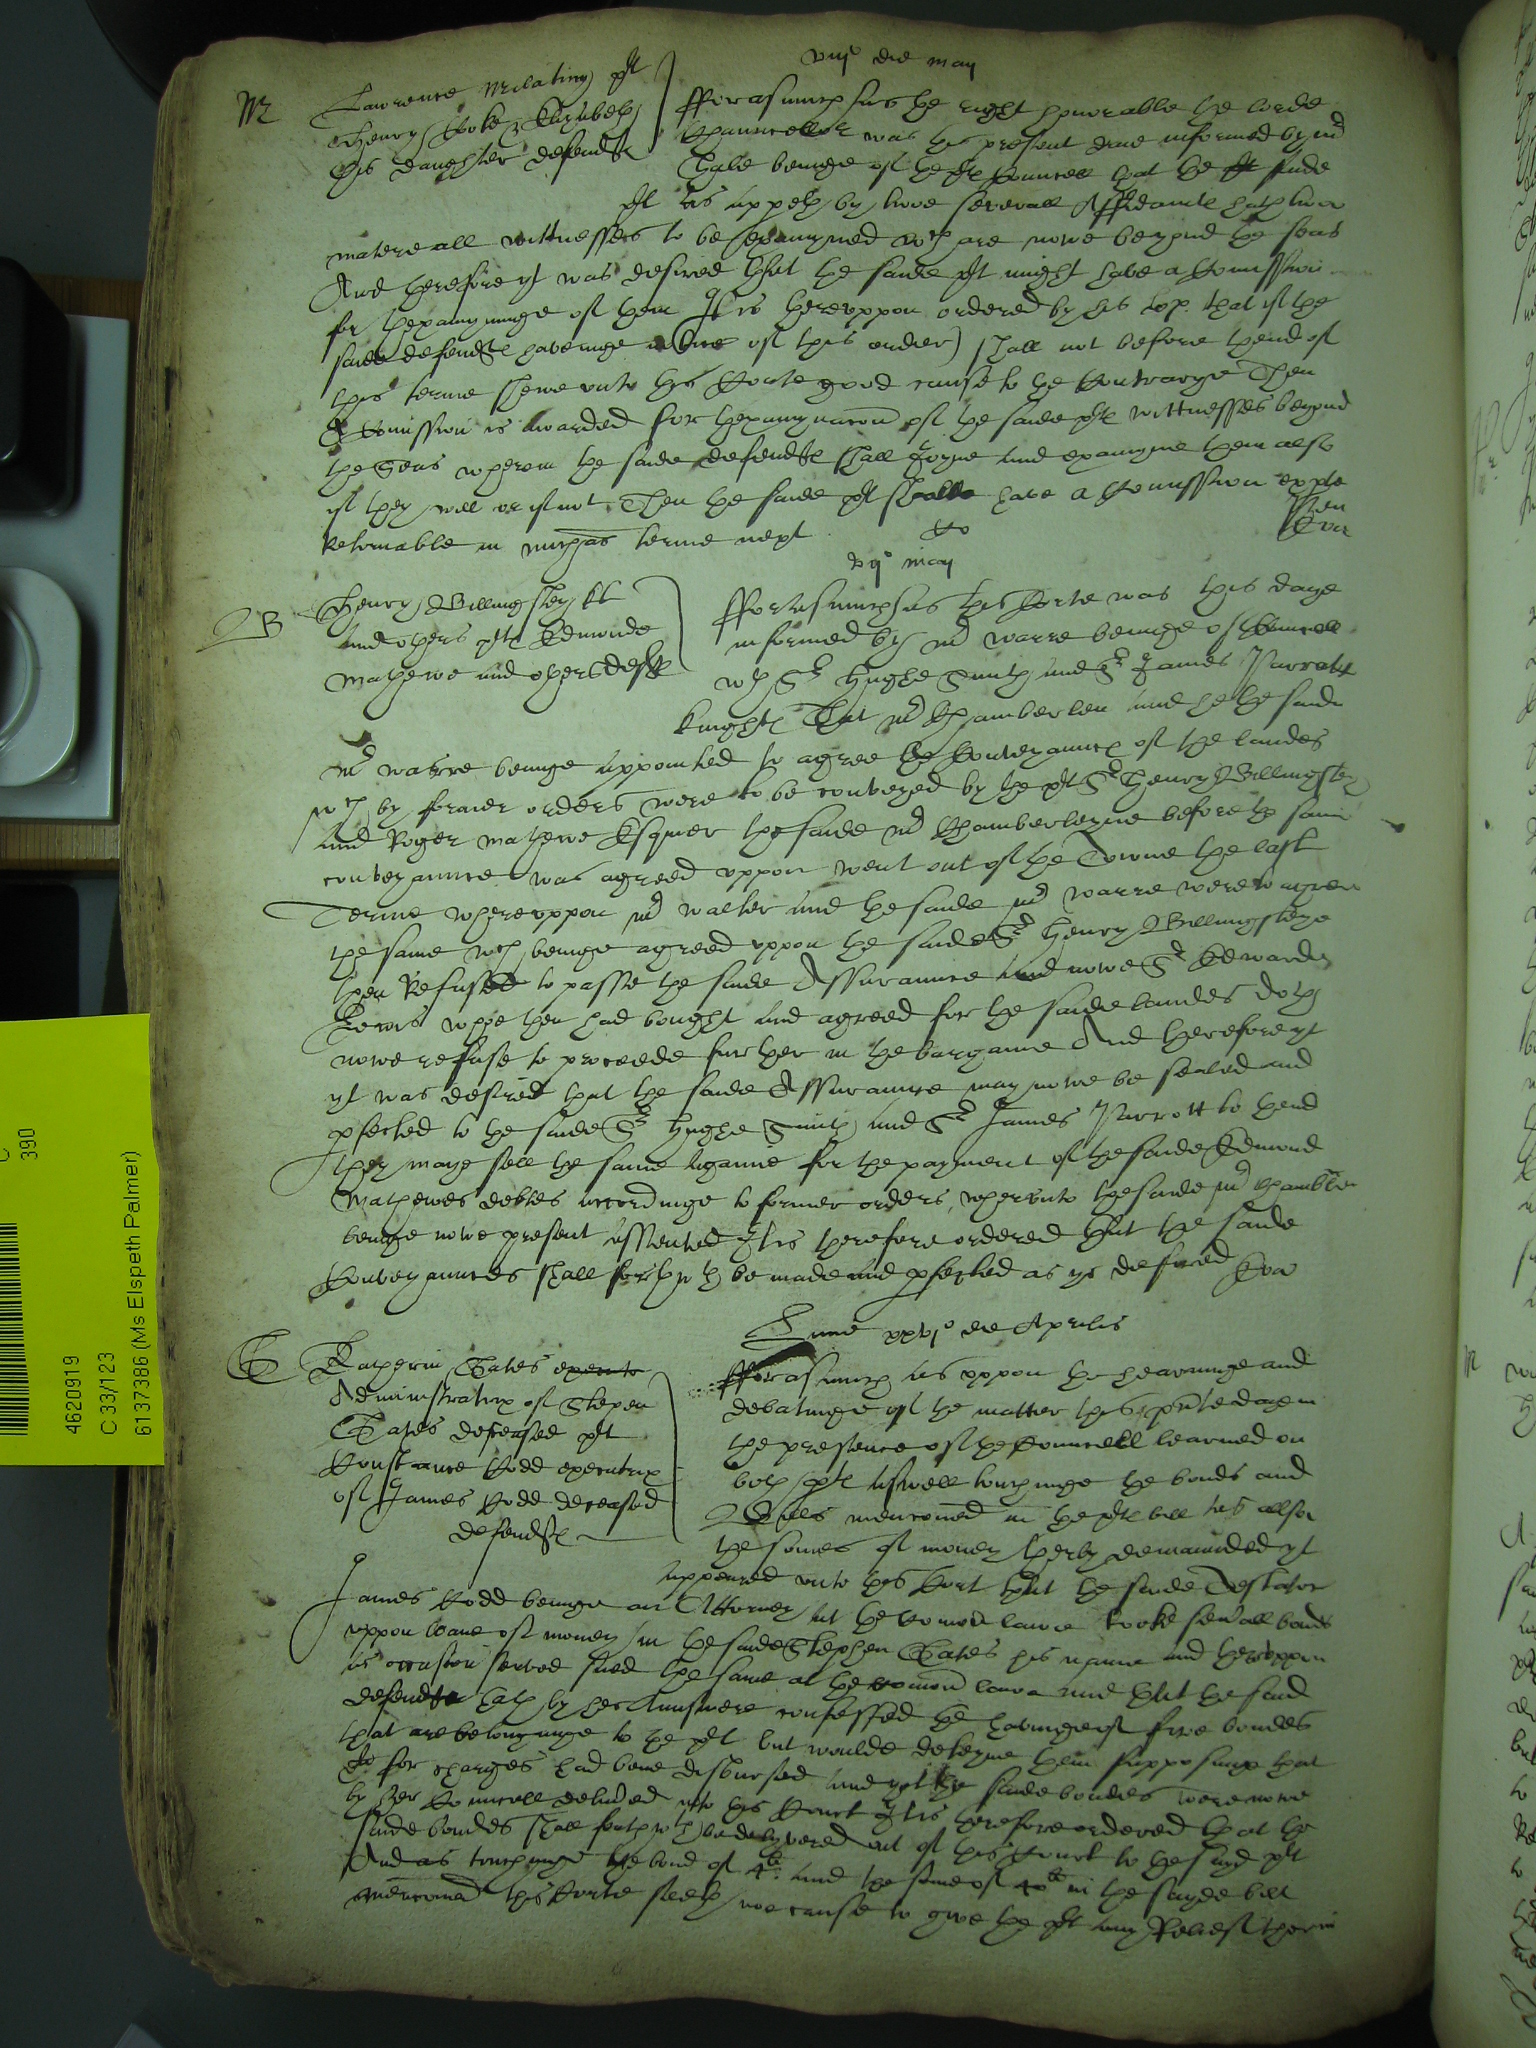 viij die maij
M
Lawrence plt
Henry Coke & Elizabeth
his daughter defendtes
fforasmuch as the right honorable the lorde
Chauncellor was this present daie informed by mr
Hale beinge of the pltes Councell that the saide
plt as appeth by twoe severall Affidavites hath twoe
matereall wittnesses to be examyned wch are nowe beyond the seas
And therefore yt was desired that the saide plt might have a Comission
for thexamyninge of them It is therevppon ordered by his Lop. that if the
saide defendtes haveinge notice of this order) shall not before thend of
this terme shewe vnto this Courte good cause to the Contrarye Then
A Comission is awarded for thexamynacon of the saide pltes wittnesses beyond
the Seas wherein the saide defendtes shall Joyne and examyne them also
if they will or if not Then the saide plt shall have a Comission exparte
Retornable in michas terme next
vij maij
B
Henry Billingsley kt
and others pltes Edmunde
Mathewe and others deftes
fforasmuch as this Corte was this daye
informed by mr warre beinge of Councell
wth Sr Hughe Smith and Sr James Parrott
knightes That mr Chamberlen and he the saide
mr warre beinge appointed to agree the Conveyaunce of the landes
wch by former orders were to be conveyed by the plt Sr Henry Billingsley
and Roger Mathewe Esquier the saide mr Chamberleyne before the same
conveyaunce was agreed vppon went out of the Towne the last
Terme wherevppon mr walter and the saide mr warre were to agree
the same wch beinge agreed vppon the saide Sr Henry Billingsleye
then Refused to passe the saide Assuraunce and nowe Sr Edwarde
Lewis whoe then had bought and agreed for the saide landes doth
nowe refuse to proceede further in the bargaine And therefore yt
yt was desired that the saide Assuraunce may nowe be sealed and
pfected to the saide Sr Hughe Smith and Sr James Parrott to thend
they maye sell the same againe for the payment of the saide Edmond
Mathewes debtes accordinge to former orders, whervnto the saide mr Chamblen
beinge nowe present assented It is therefore ordered that the saide
Conveyaunces shall forthwth be made and pfected as ys desired
Lune xxvjo die Aprilis
G
Katherin Gates executr
Administratrix of Stephen
Gates deceased plt
Constance Codd executrix
of James Codd deceased
defendtes
fforasmuch as vppon the hearinge and
debatinge of the matter this pnte daye in
the presence of the Councell learned on
both ptes aswell touchinge the bonds and
Bills mencioned in the pltes bill as also
the somes of money therby demaunded yt
appeared vnto this Cort that the saide Testator
James Codd beinge an Attorney at the comon lawe tooke sevall bonds
vppon loane of money in the saide Stephen Gates his name and therevppon
as occasion served sued the same at the comon lawe and that the said
defendte hath by her Aunswere confessed the havinge of five bondes
that are belonginge to the plt but woulde deteyne them supposinge that
for charges had bene disbursed and yet the saide bondes were nowe
by her Councell delived into this Court It is therefore ordered that the
saide bondes shall forthwth be delyvered out of this Court to the said plt
And as touchinge the bond of 4li and the some of 40li in the sayde bill
mencioned this Corte seeth noe cause to give the plt any Releef therin
4620919
C 33/123
6137386 (Ms Elspeth Palmer)
C
390